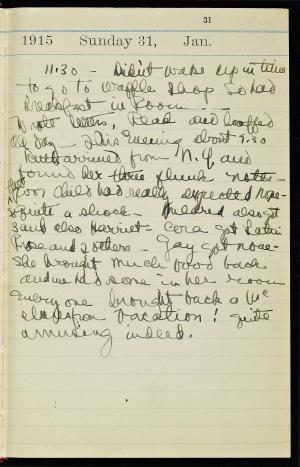 31
1915 Sunday 31, Jan.
11.30 - Didn't wake up in time
to go to Waffle Shop so had
Breakfast in Room - -
Wrote letters, Read and loafed
all day - This evening about 7.30
Ruth arrived from N.Y. and
found her three flunk notes -
poor child had really expected none -
so quite a shock - Mildred also got
3 and also Harriet - Cora got Latin
Prose and 2 others - Gay got none -
She brought much food back
and we had some in her room
Every one brought back a
from vacation! quite
amusing indeed.